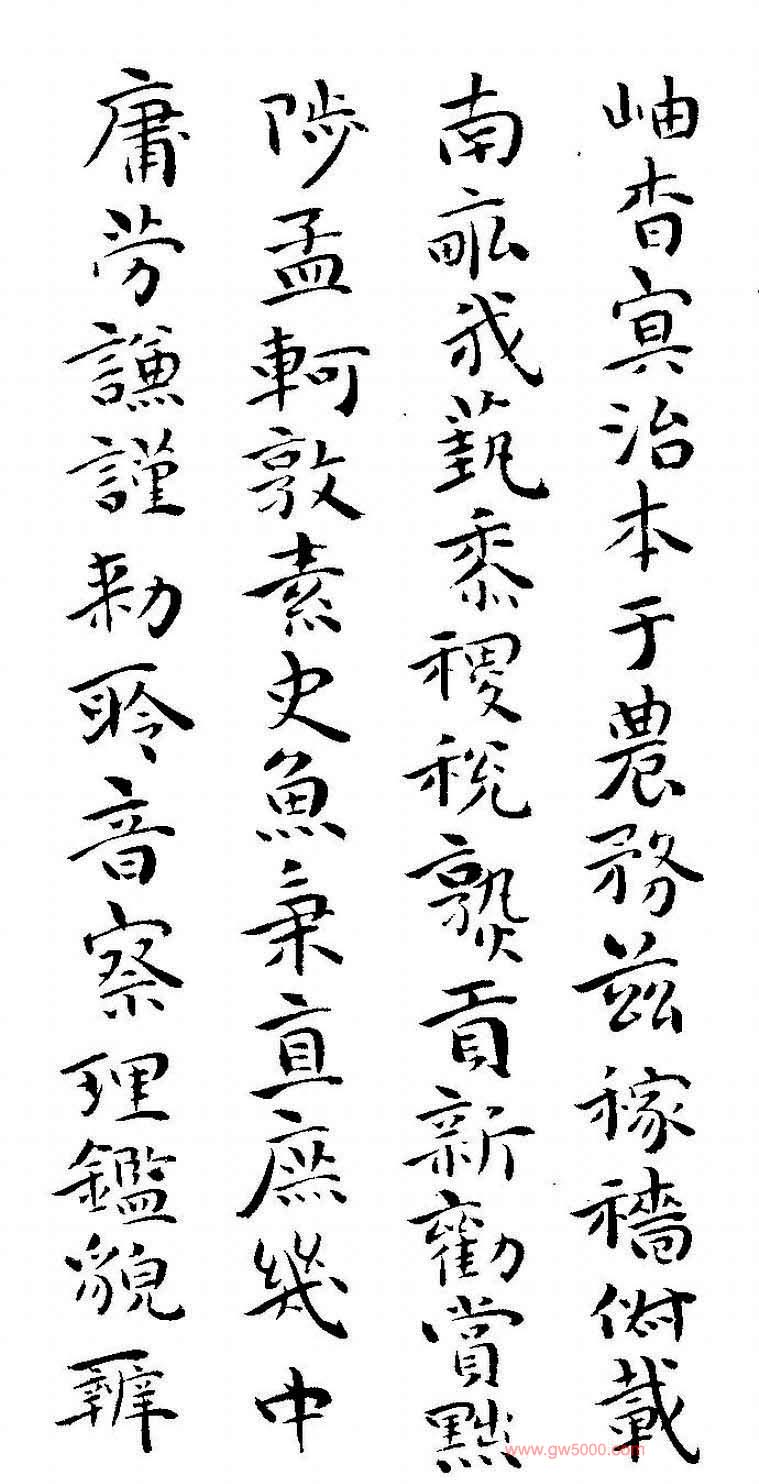 岫杳冥治本于農務茲稼穡俶載
南畝我藝黍稷稅熟貢新勸賞黜
陟孟軻敦素史魚秉直庶幾中
庸勞謙謹勑聆音察理鑑貌辨
www.gw5000.com